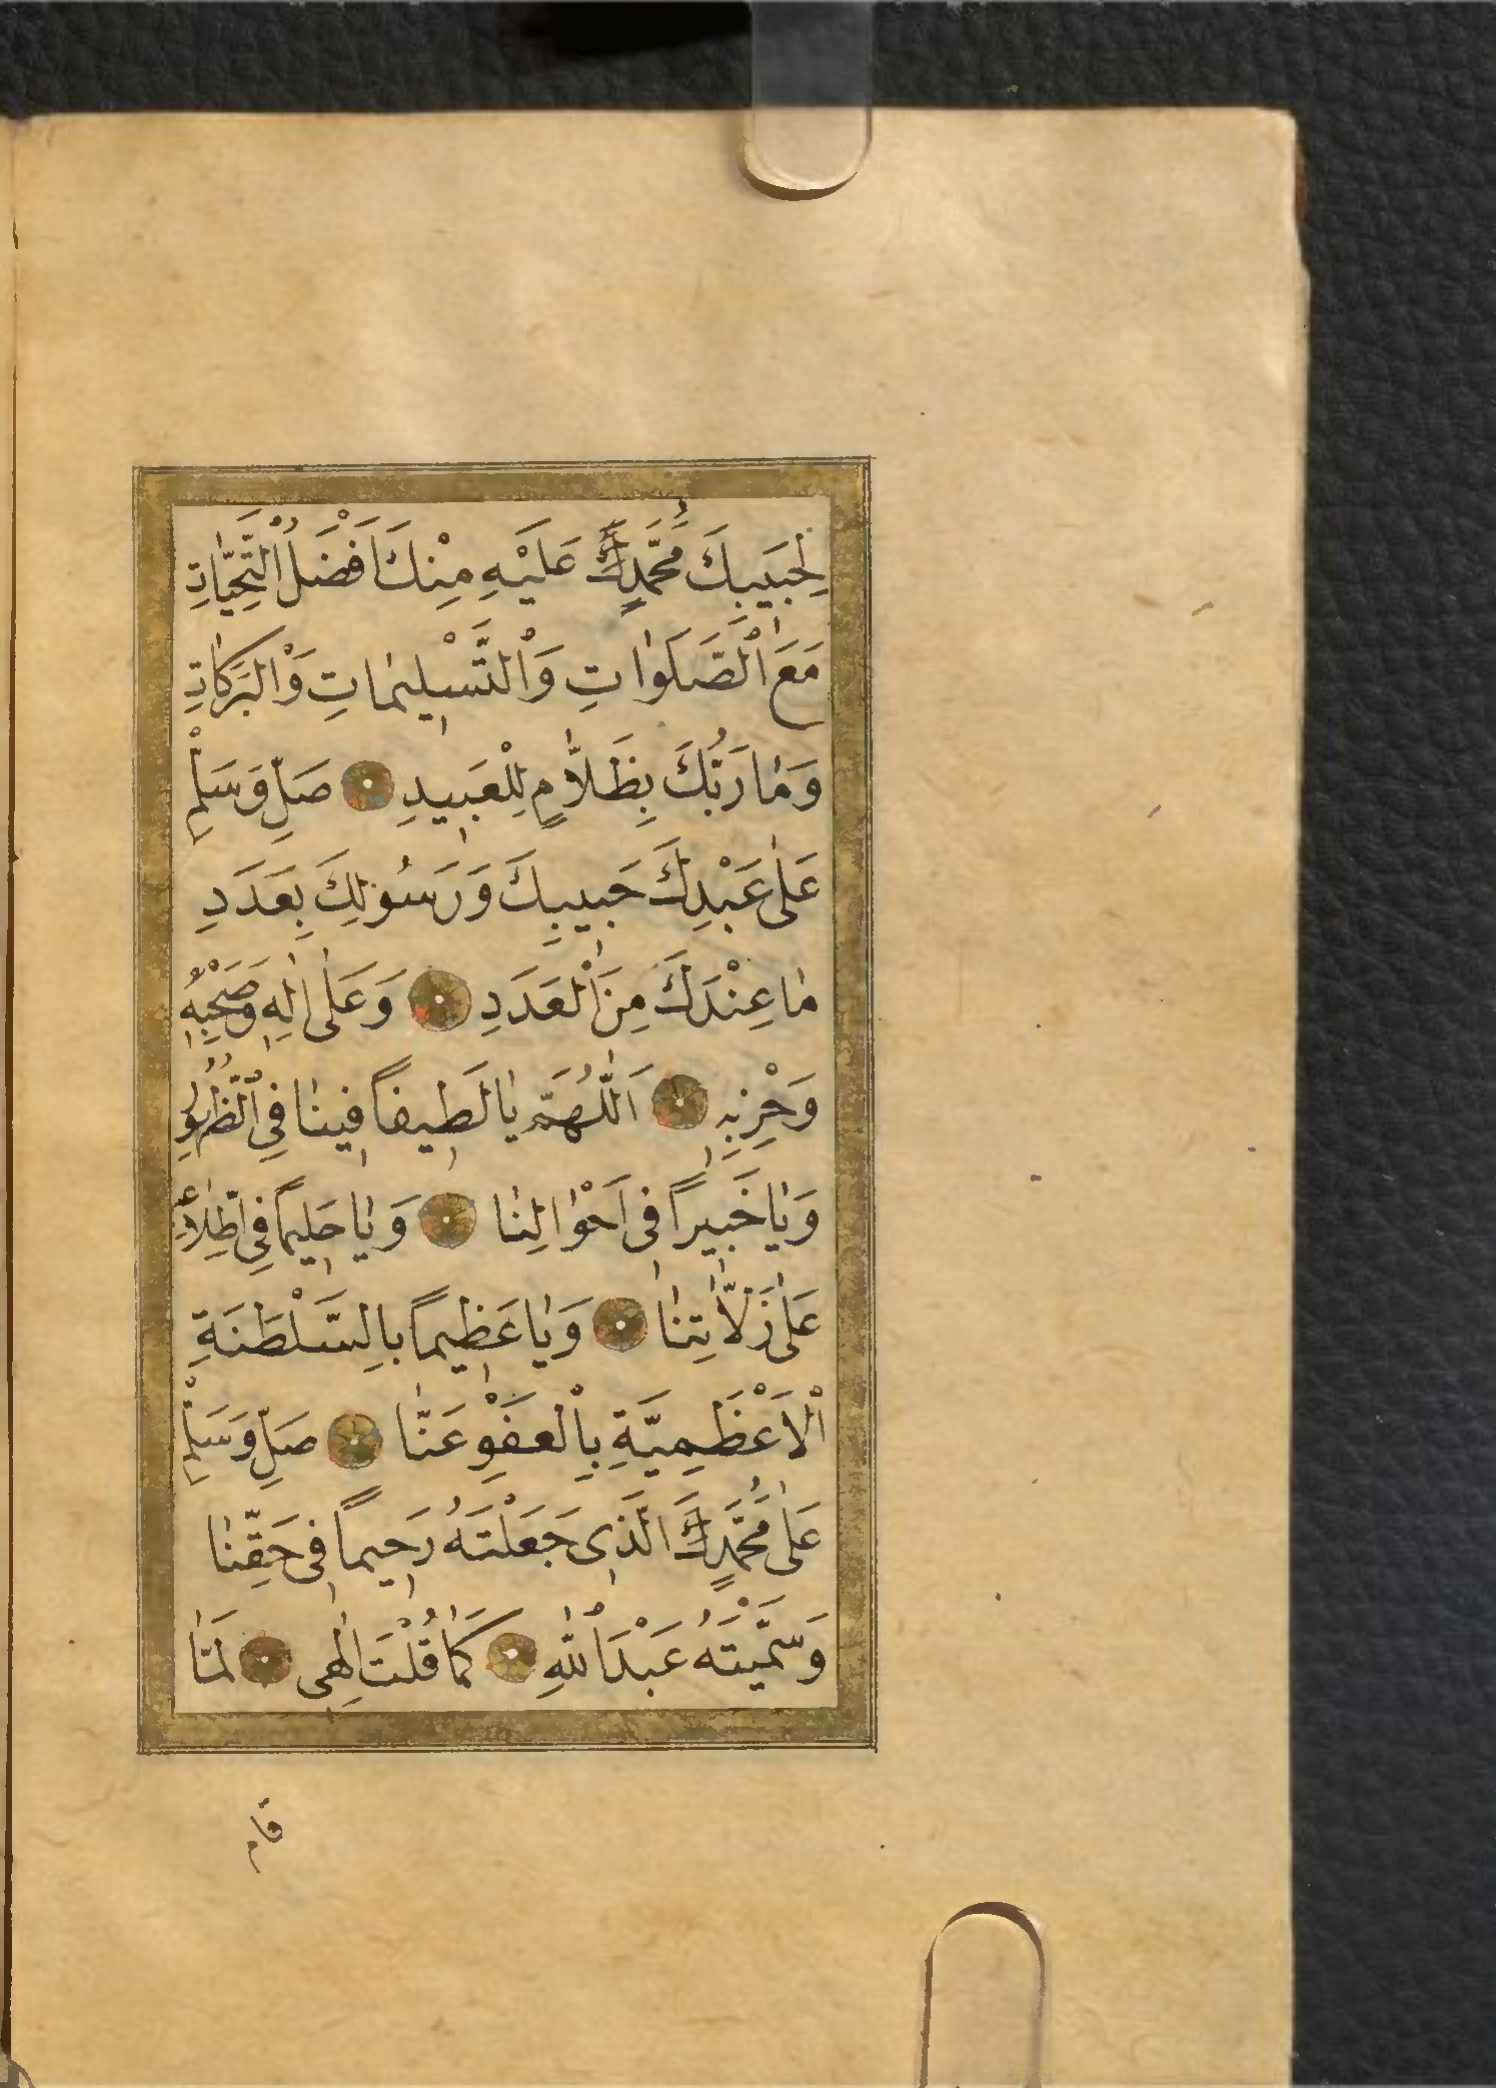 لِحَبِيبِكَ مُحَمَّدٍكَ عَلَيْهِ مِنْكَ اَفْضَلُ الْتَّحِيَّاتِ
مَعَ الْصَّلَوٰاتِ وَالْتَّسْلِيمٰاتِ وَالْبَرَكٰاتِ
وَمٰا رَبُّكَ بِظَلّٰامٍ لِلْعَبِيدِ صَلِّ وَسَلِّمْ
عَلٰى عَبْدِكَ حَبِيبِكَ وَرَسُولِكَ بِعَدَدِ
مٰا عِنْدَكَ مِنَ الْعَدَدِ وَعَلٰى اٰلِهِ وَصَحْبِهِ
وَحِزْبِهِ اَللّٰهُمَّ يٰا لَطِيفاً فِينٰا فِي الْظُّهُورِ
وَيٰا خَبِيراً فِى اَحْوٰالِنٰا وَيٰا حَلِيماً فِى اِطِّلٰاعٍ
عَلٰى زَلّٰاتِنٰا وَيٰا عَظِيماً بِالسَّلْطَنَةِ
الْاَعْظَمِيَّةِ بِالْعَفْوِ عَنّٰا صَلِّ وَسَلِّمْ
عَلٰى مُحَمَّدٍكَ الَّذِى جَعَلْتَهُ رَحِيماً فِى حَقِّنٰا
وَسَمَّيْتَهُ عَبْدَ اللّٰهِ كَمٰا قُلْتَ اِلٰهِى لَمّٰا
قام